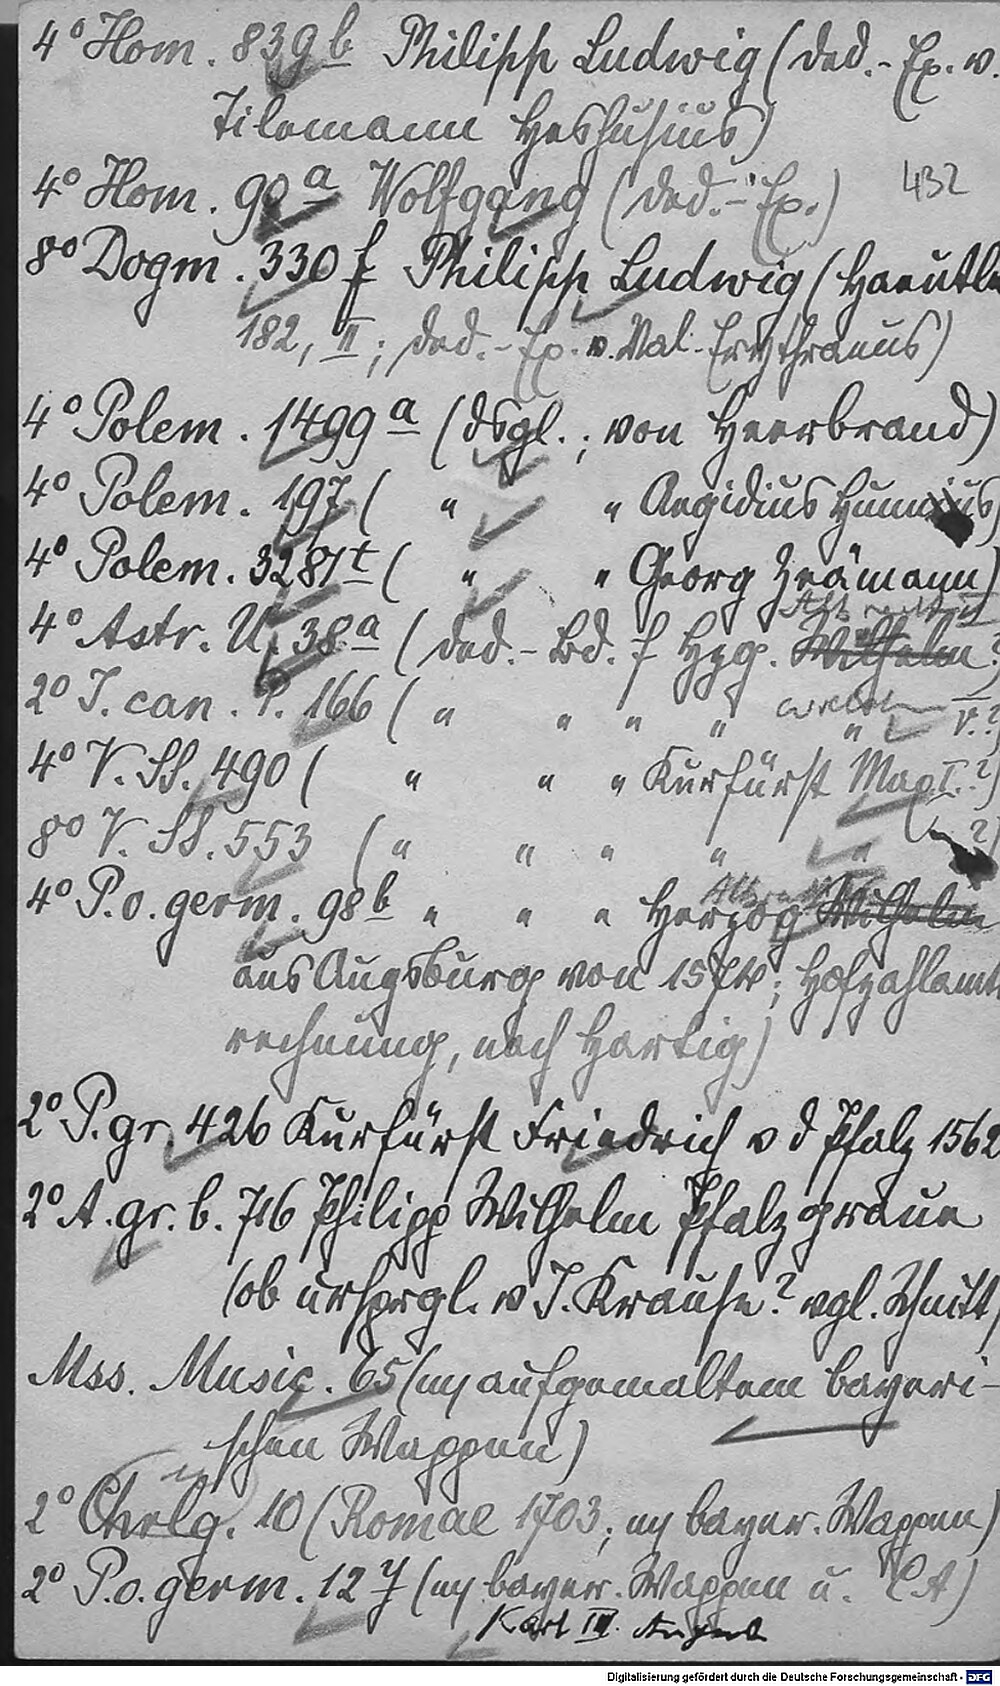 4° Hom. 839 b Philipp Ludwig (Ded.-Ex. v.
Tilemann Heshusius)
4° Hom. 90 a Wolfgang (Ded.-Ex.) 432
8° Dogm. 330 f Philipp Ludwig (Haeutle
182, II; Ded.-Ex. v. Val. Erythraeus)
4° Polem. 1499 a (dsgl.; von Heerbrand)
4° Polem. 197 ( " " Aegidius Hunnius)
4° Polem. 3281 t ( " " Georg Zeämann)
Albrecht V
4° Astr. U. 38 a (Ded.-Bd. f Hzg. Wilhelm ?
2° J. can. P. 166 ( " " " " " V.?)
4° V. SS. 490 ( " " " Kurfürst Max I.?)
8° V. SS. 553 ( " " " " " ?)
4° P.o. germ. 98 b " " " Herzog Wilhelm
aus Augsburg von ; Hofzahlamts
rechnung, nach Hartig)
2° P. gr. 426 Kurfürst Friedrich v d Pfalz 1562
2° A. gr. b. 716 Philipp Wilhelm Pfalzgraue
(ob ursprgl. v J. Krause? vgl. Schnitt)
Mss. Music. 65 (m aufgemaltem bayeri-
schen Wappen)
2° Chrlg. 10 (Romae 1703; m bayer. Wappen)
2° P.o. germ. 12 (m bayer. Wappen u. CA)
Karl August
Digitalisierung gefördert durch die Deutsche Forschungsgemeinschaft - DFG